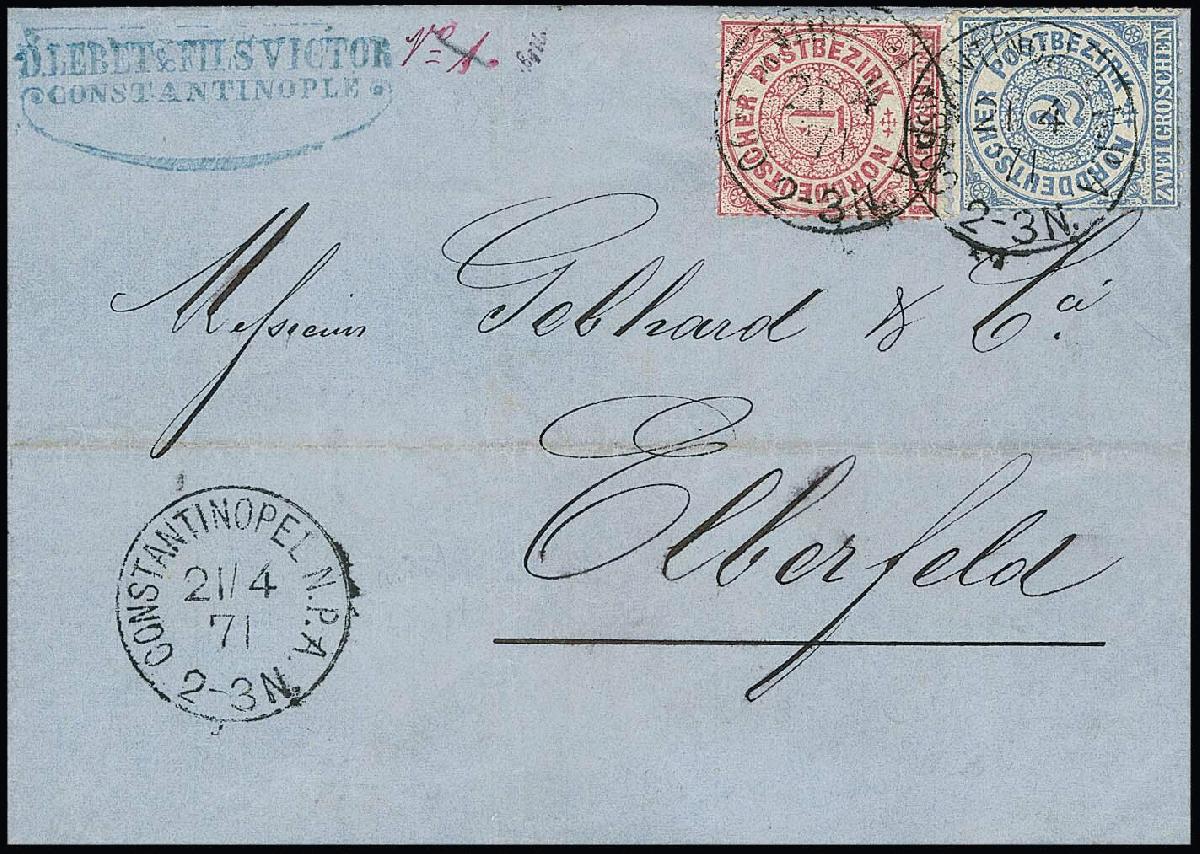 D. LEBET & FILS VICTOR
CONSTANTINOPLE
No 1.
NORDDEUTSCHER POSTBEZIRK
1
NORDDEUTSCHER POSTBEZIRK
2
ZWEI GROSCHEN
21/4
71
2-3N.
1 4
71
2-3N.
Messieurs Gebhard & Co.
Elberfeld
CONSTANTINOPEL N.P.A.
21/4
71
2-3N.